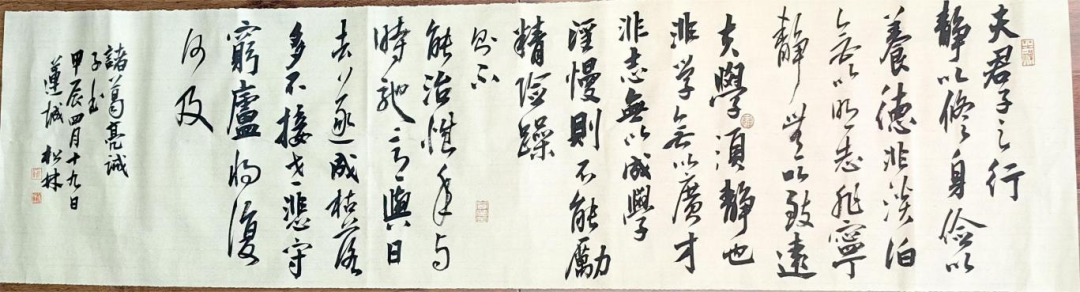 夫君子之行
静以修身俭以
養德非淡泊
無以明志非寧
静無以致遠
夫學須静也
非学無以廣才
非志無以成學
淫慢則不能勵
精险躁
则不
能治性年与
時馳意與日
去遂成枯落
多不接世悲守
窮廬将復
何及
諸葛亮誡
子書
甲辰四月十九日
蓮城 松林